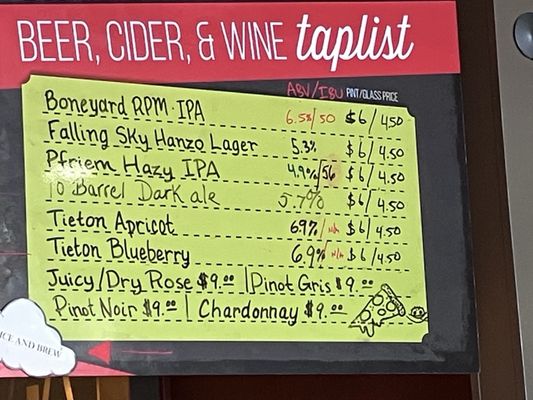 BEER, CIDER, & WINE taplist
ABV/IBU PINT/GLASS PRICE
Boneyard RPM IPA 6.5%/50 $6/4.50
Falling Sky Hanzo Lager 5.3% $6/4.50
Pfriem Hazy IPA 4.9%/56 $6/4.50
10 Barrel Dark ale 5.7% $6/4.50
Tieton Apricot 6.9%/n/a $6/4.50
Tieton Blueberry 6.9%/n/a $6/4.50
Juicy/Dry Rose $9.00 | Pinot Gris $9.00
Pinot Noir $9.00 | Chardonnay $9.00
ICE AND BREW